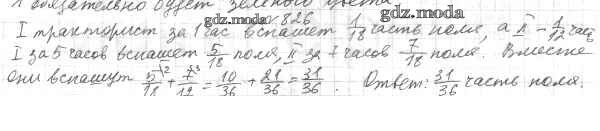 обязательно будет зелёного цвета
gdz.moda
826
gdz.moda
I тракторист за 1 час вспашет 1/18 часть поля, а II – 1/12 часть
I за 5 часов вспашет 5/18 поля, II за 7 часов 7/18 поля. Вместе
они вспашут 5/18 + 7/12 = 10/36 + 21/36 = 31/36. Ответ: 31/36 часть поля.